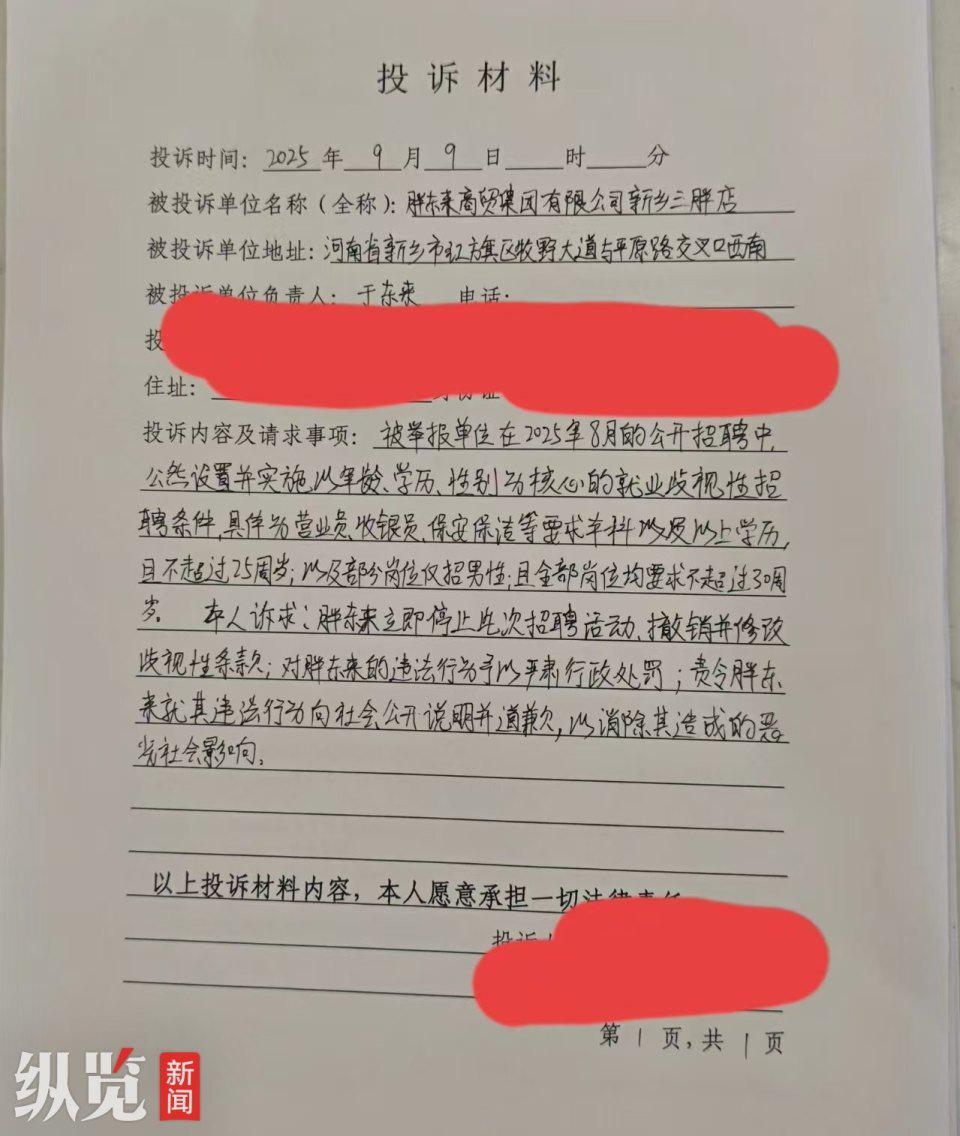 投诉材料
投诉时间：2025年9月9日 时 分
被投诉单位名称（全称）：胖东来商贸集团有限公司新乡三胖店
被投诉单位地址：河南省新乡市红旗区牧野大道与平原路交叉口西南
被投诉单位负责人：于东来 电话：
投
住址：
投诉内容及请求事项：被举报单位在2025年8月的公开招聘中，
公然设置并实施以年龄、学历、性别为核心的就业歧视性招
聘条件，具体为营业员、收银员、保安保洁等要求本科以及以上学历，
且不超过25周岁；以及部分岗位仅招男性；且全部岗位均要求不超过30周
岁。 本人诉求：胖东来立即停止此次招聘活动、撤销并修改
歧视性条款；对胖东来的违法行为予以严肃行政处罚；责令胖东
来就其违法行为向社会公开说明并道歉，以消除其造成的恶
劣社会影响。
以上投诉材料内容，本人愿意承担一切法律责任
投诉人
第1页，共1页
纵览新闻